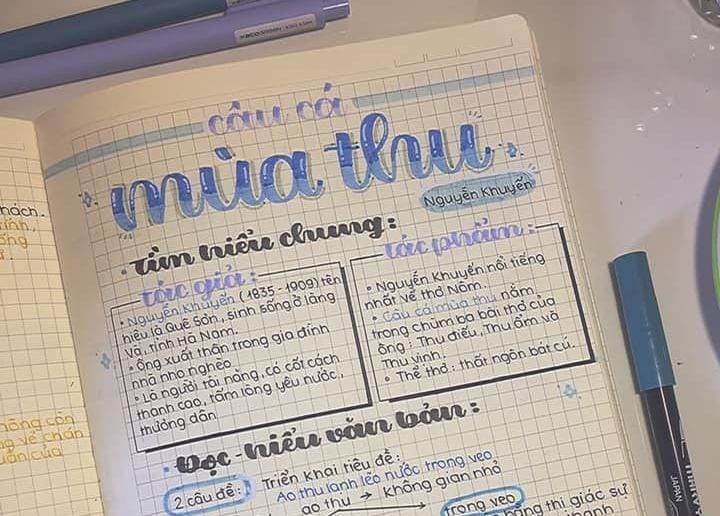 câu cá
mùa thu
Nguyễn Khuyến
• Tìm hiểu chung:
tác giả:
• Nguyễn Khuyến (1835 - 1909) tên
hiệu là Quế Sơn, sinh sống ở làng
Và, tỉnh Hà Nam.
• Ông xuất thân trong gia đình
nhà nho nghèo.
• Là người tài năng, có cốt cách
thanh cao, tấm lòng yêu nước,
thương dân
tác phẩm:
• Nguyễn Khuyến nổi tiếng
nhất về thơ Nôm.
• Câu cá mùa thu nằm
trong chùm ba bài thơ của
ông: Thu điếu, Thu ẩm và
Thu vịnh.
• Thể thơ: thất ngôn bát cú.
• Đọc - hiểu văn bản:
2 câu đề:
Triển khai tiêu đề:
Ao thu lạnh lẽo nước trong veo
ao thu → không gian nhỏ
trong veo
thị giác sự
hách.
JAPAN